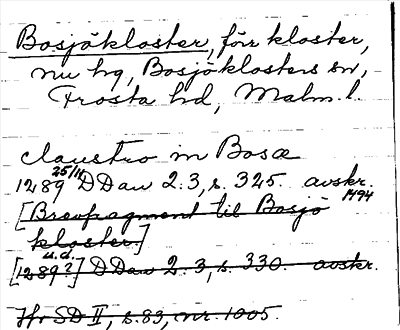 Bosjökloster, förr kloster,
nu hg, Bosjöklosters sn,
Frosta hd, Malm. l.
claustro in Bosæ
1289 25/11 DDan 2:3, s. 325. avskr. 1494
[Brevfragment til Bosjö
kloster]
[1289?] u.d. DDan 2:3, s. 330. avskr.
Hr SD II, s. 83, nr. 1005.